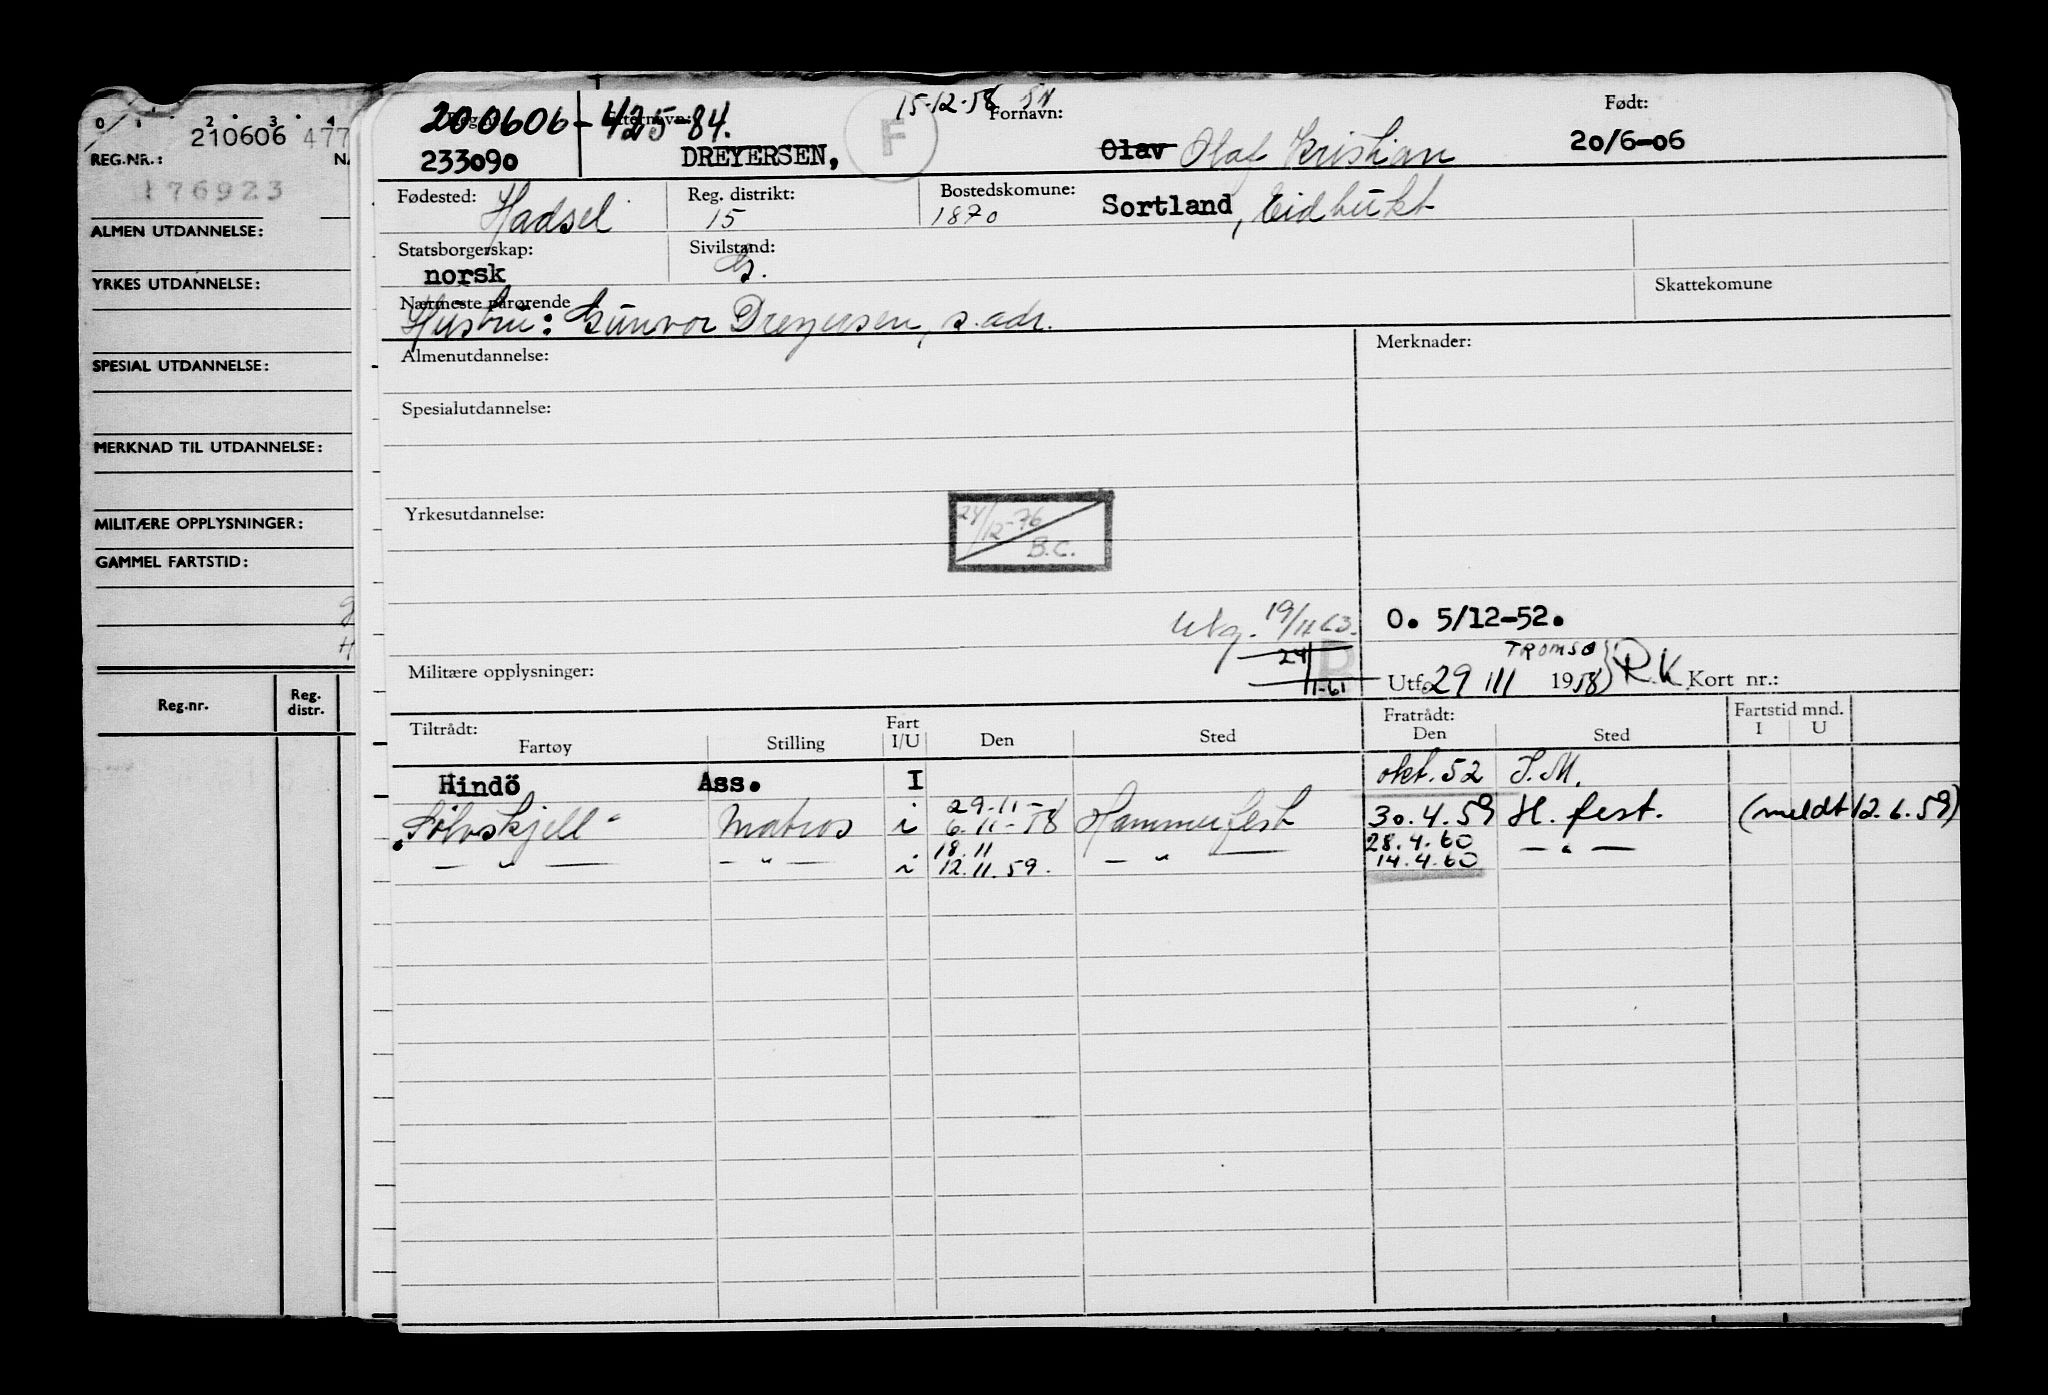 0 1 2 3 4
210606 477
REG.NR.: NA
176923
ALMEN UTDANNELSE:
YRKES UTDANNELSE:
SPESIAL UTDANNELSE:
MERKNAD TIL UTDANNELSE:
MILITÆRE OPPLYSNINGER:
GAMMEL FARTSTID:
Reg.nr. Reg. distr.
200606-425-84. 15-12-58 Fornavn: Født:
233090 DREYERSEN, F Olav Olaf Kristian 20/6-06
Fødested: Hadsel Reg. distrikt: 15 Bostedskomune: 1870 Sortland, Eidbukt
Statsborgerskap: norsk Sivilstand: G.
Skattekomune
Nærmeste pårørende
Hustru: Gunvor Dreyersen, s. adr.
Almenutdannelse: Merknader:
Spesialutdannelse:
Yrkesutdannelse: 24/12-76 B.C.
Utg. 19/11 63. O. 5/12-52.
24/1-61 TROMSØ
Militære opplysninger: Utf. 29/11 1958 R.K. Kort nr.:
Tiltrådt: Fart Fratrådt: Fartstid mnd.
Fartøy Stilling I/U Den Sted Den Sted I U
Hindö Ass. I okt. 52 S.M.
"Sølvskjell" Matros i 29-11- 6-11-58 Hammerfest 30.4.59 H. fest. (meldt 12.6.59)
— " — — " — i 18.11 12.11.59. — " — 28.4.60 14.4.60 — " —